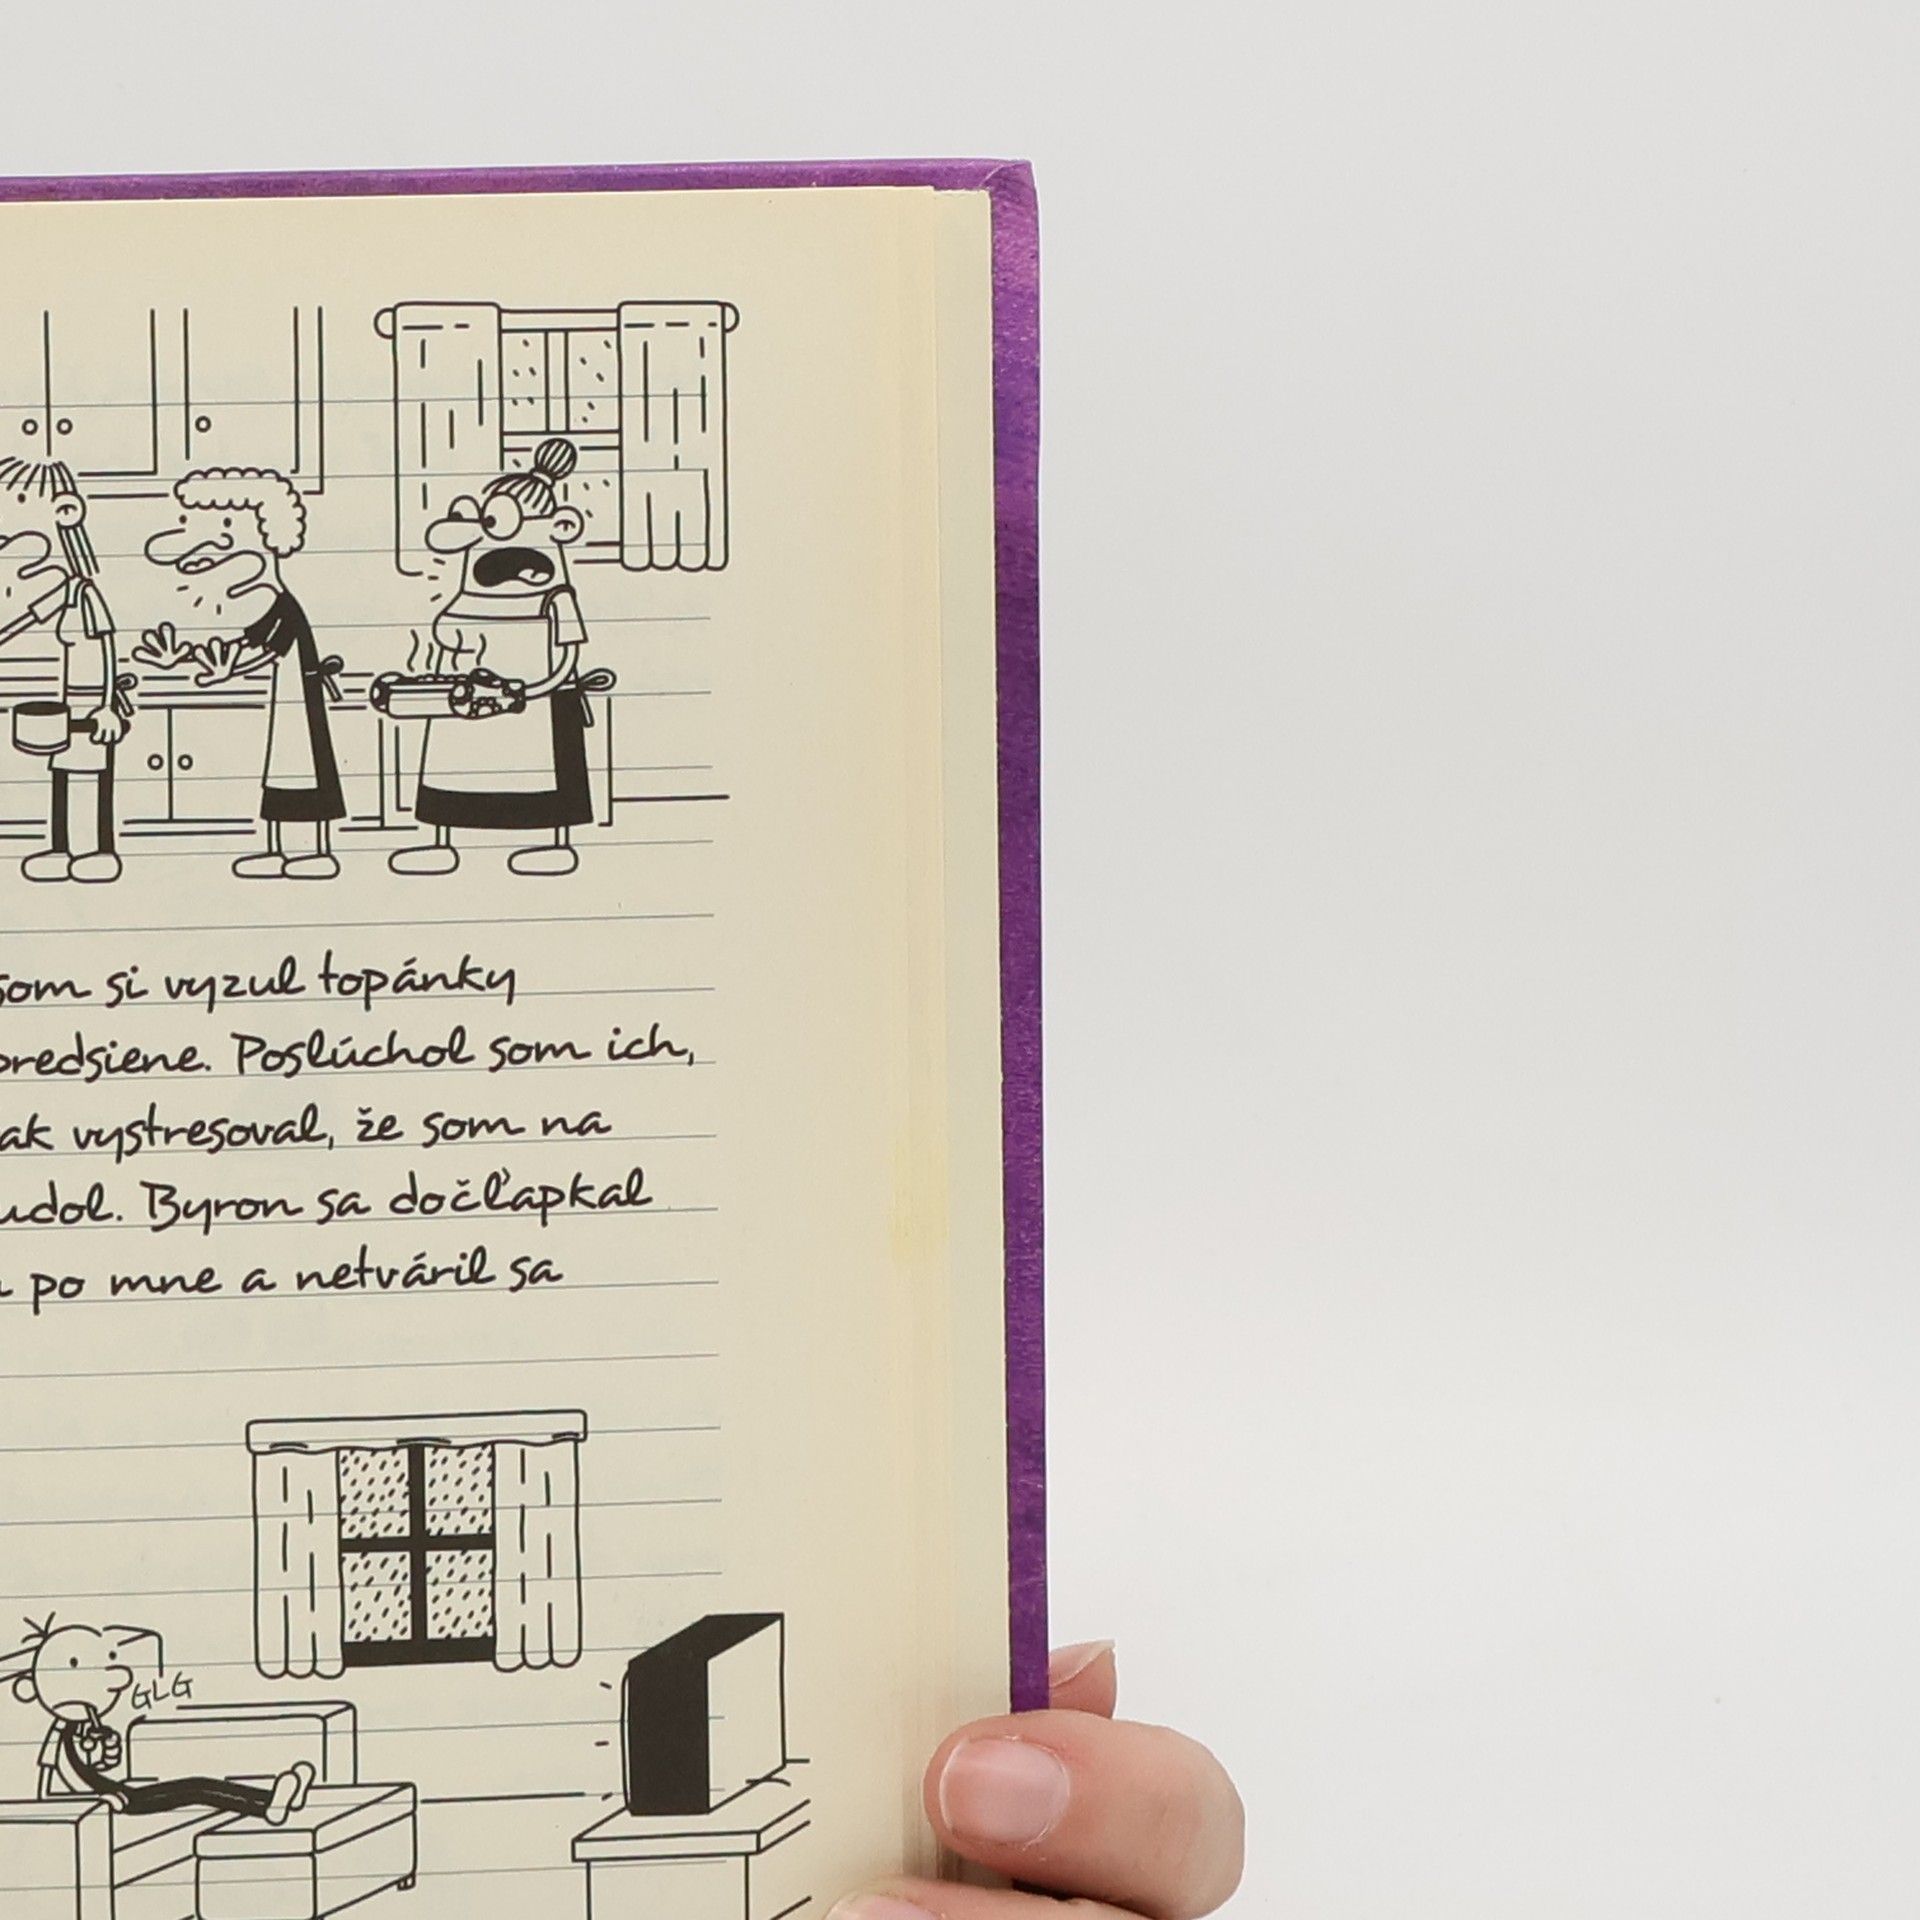 som si vyzul topánky
predsiene. Poslúchol som ich,
ak vystresoval, že som na
udol. Byron sa dočľapkal
po mne a netváril sa
GLG